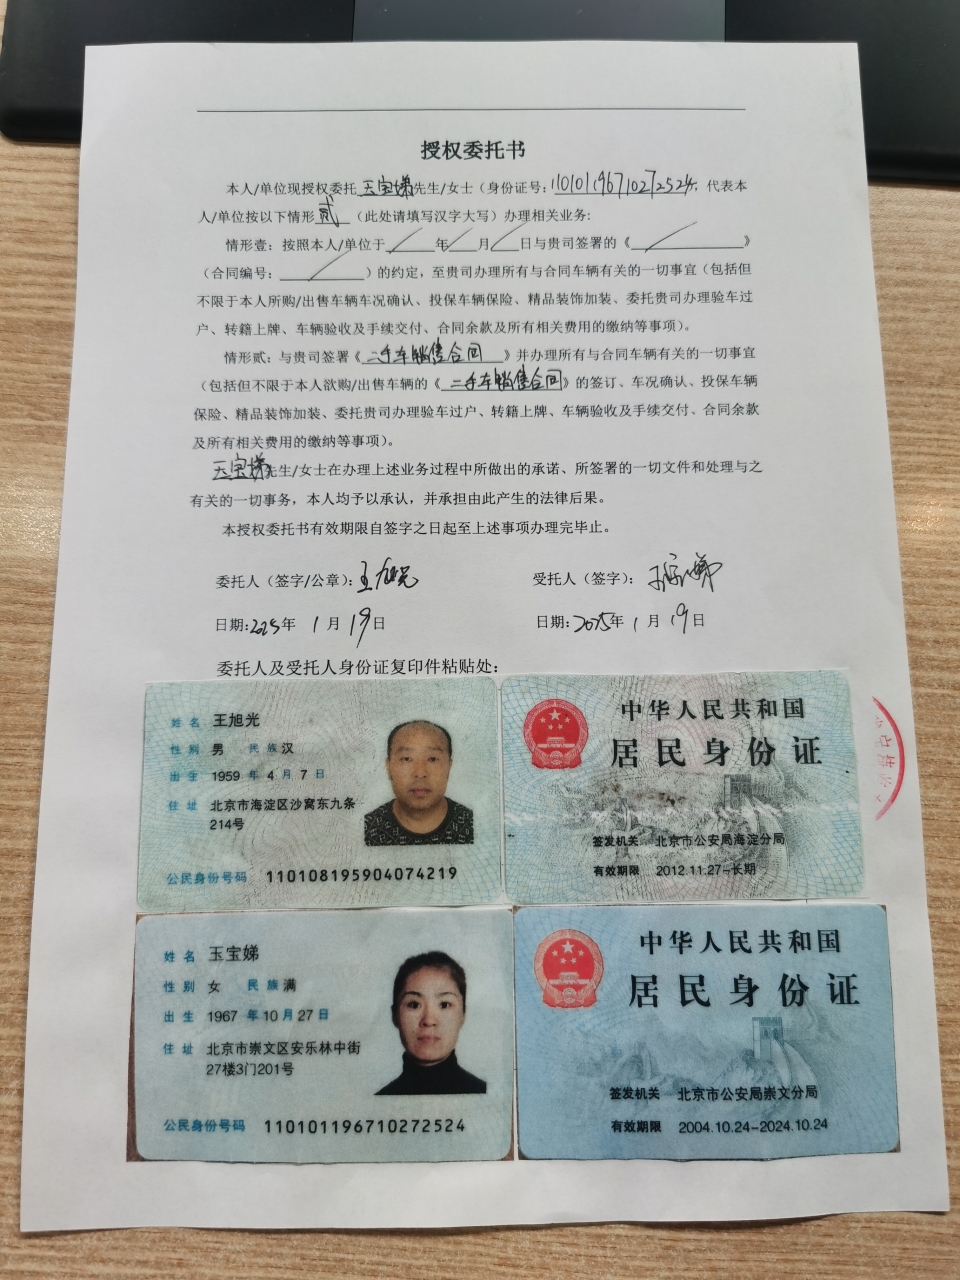 授权委托书
本人/单位现授权委托玉宝娣先生/女士（身份证号：110101196710272524，代表本
人/单位按以下情形贰（此处请填写汉字大写）办理相关业务:
情形壹：按照本人/单位于 年 月 日与贵司签署的《 》
（合同编号： ）的约定，至贵司办理所有与合同车辆有关的一切事宜（包括但
不限于本人所购/出售车辆车况确认、投保车辆保险、精品装饰加装、委托贵司办理验车过
户、转籍上牌、车辆验收及手续交付、合同余款及所有相关费用的缴纳等事项）。
情形贰：与贵司签署《二手车销售合同》并办理所有与合同车辆有关的一切事宜
（包括但不限于本人欲购/出售车辆的《二手车销售合同》的签订、车况确认、投保车辆
保险、精品装饰加装、委托贵司办理验车过户、转籍上牌、车辆验收及手续交付、合同余款
及所有相关费用的缴纳等事项）。
玉宝娣先生/女士在办理上述业务过程中所做出的承诺、所签署的一切文件和处理与之
有关的一切事务，本人均予以承认，并承担由此产生的法律后果。
本授权委托书有效期限自签字之日起至上述事项办理完毕止。
委托人（签字/公章）：王旭光 受托人（签字）：玉宝娣
日期:2025年 1 月 19日 日期:2025年 1 月 19日
委托人及受托人身份证复印件粘贴处：
姓名 王旭光
性别 男 民族 汉
出生 1959 年 4 月 7 日
住址 北京市海淀区沙窝东九条
214号
公民身份号码 110108195904074219
中华人民共和国
居民身份证
签发机关 北京市公安局海淀分局
有效期限 2012.11.27-长期
姓名 玉宝娣
性别 女 民族 满
出生 1967 年 10 月 27 日
住址 北京市崇文区安乐林中街
27楼3门201号
公民身份号码 110101196710272524
中华人民共和国
居民身份证
签发机关 北京市公安局崇文分局
有效期限 2004.10.24-2024.10.24